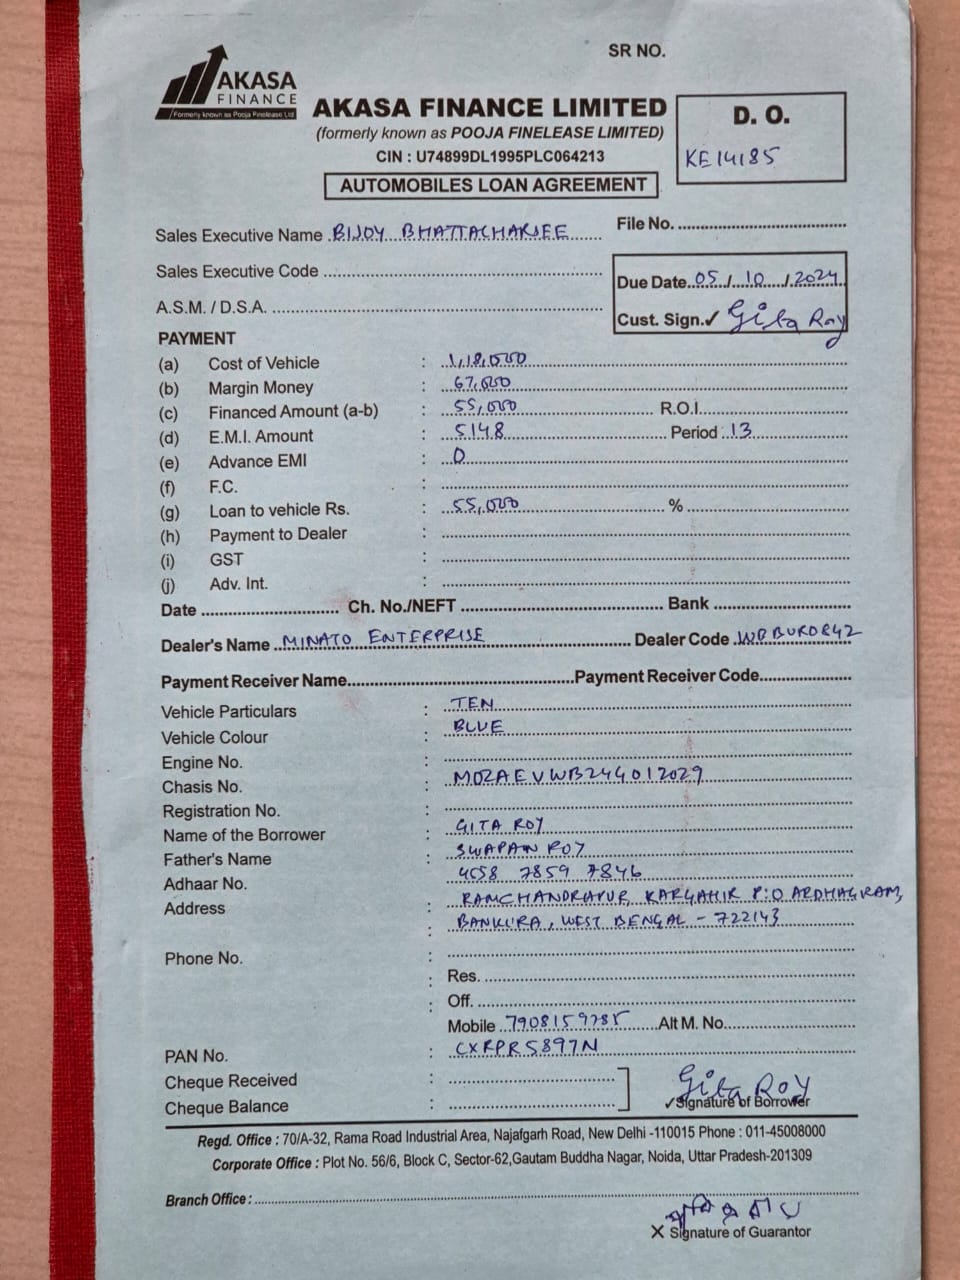 SR NO.
AKASA
FINANCE
Formerly known as Pooja Finelease Ltd
AKASA FINANCE LIMITED
(formerly known as POOJA FINELEASE LIMITED)
CIN : U74899DL1995PLC064213
AUTOMOBILES LOAN AGREEMENT
D. O.
KE14185
Sales Executive Name BIJOY BHATTACHARJEE
File No.
Sales Executive Code
Due Date 05/10/2024
A.S.M. / D.S.A.
Cust. Sign.✓ Gita Roy
PAYMENT
(a) Cost of Vehicle : 1,18,000
(b) Margin Money : 67,000
(c) Financed Amount (a-b) : 55,000 R.O.I.
(d) E.M.I. Amount : 5148 Period 13
(e) Advance EMI : 0
(f) F.C. :
(g) Loan to vehicle Rs. : 55,000 %
(h) Payment to Dealer :
(i) GST :
(j) Adv. Int. :
Date Ch. No./NEFT Bank
Dealer's Name MINATO ENTERPRISE Dealer Code WBBURD842
Payment Receiver Name Payment Receiver Code
Vehicle Particulars : TEN
Vehicle Colour : BLUE
Engine No. :
Chasis No. : MOZAEVWB244012029
Registration No. :
Name of the Borrower : GITA ROY
Father's Name : SWAPAN ROY
Adhaar No. : 4558 7859 7846
Address : RAMCHANDRAPUR, KARGAHIR P:O ARDHAGRAM,
: BANKURA, WEST BENGAL - 722143
Phone No. :
: Res.
: Off.
Mobile 7908159785 Alt M. No.
PAN No. : CXRPR5897N
Cheque Received :
Cheque Balance :
Gita Roy
✓Signature of Borrower
Regd. Office : 70/A-32, Rama Road Industrial Area, Najafgarh Road, New Delhi -110015 Phone : 011-45008000
Corporate Office : Plot No. 56/6, Block C, Sector-62,Gautam Buddha Nagar, Noida, Uttar Pradesh-201309
Branch Office :
X Signature of Guarantor